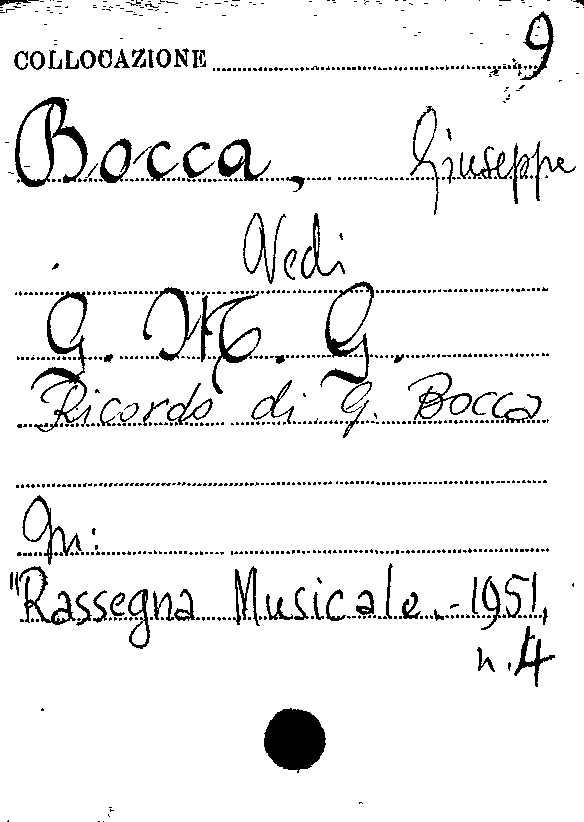 9
COLLOCAZIONE
Bocca, Giuseppe
Vedi
G. M. G.
Ricordo di G. Bocca
In:
"Rassegna Musicale.- 1951,
n. 4